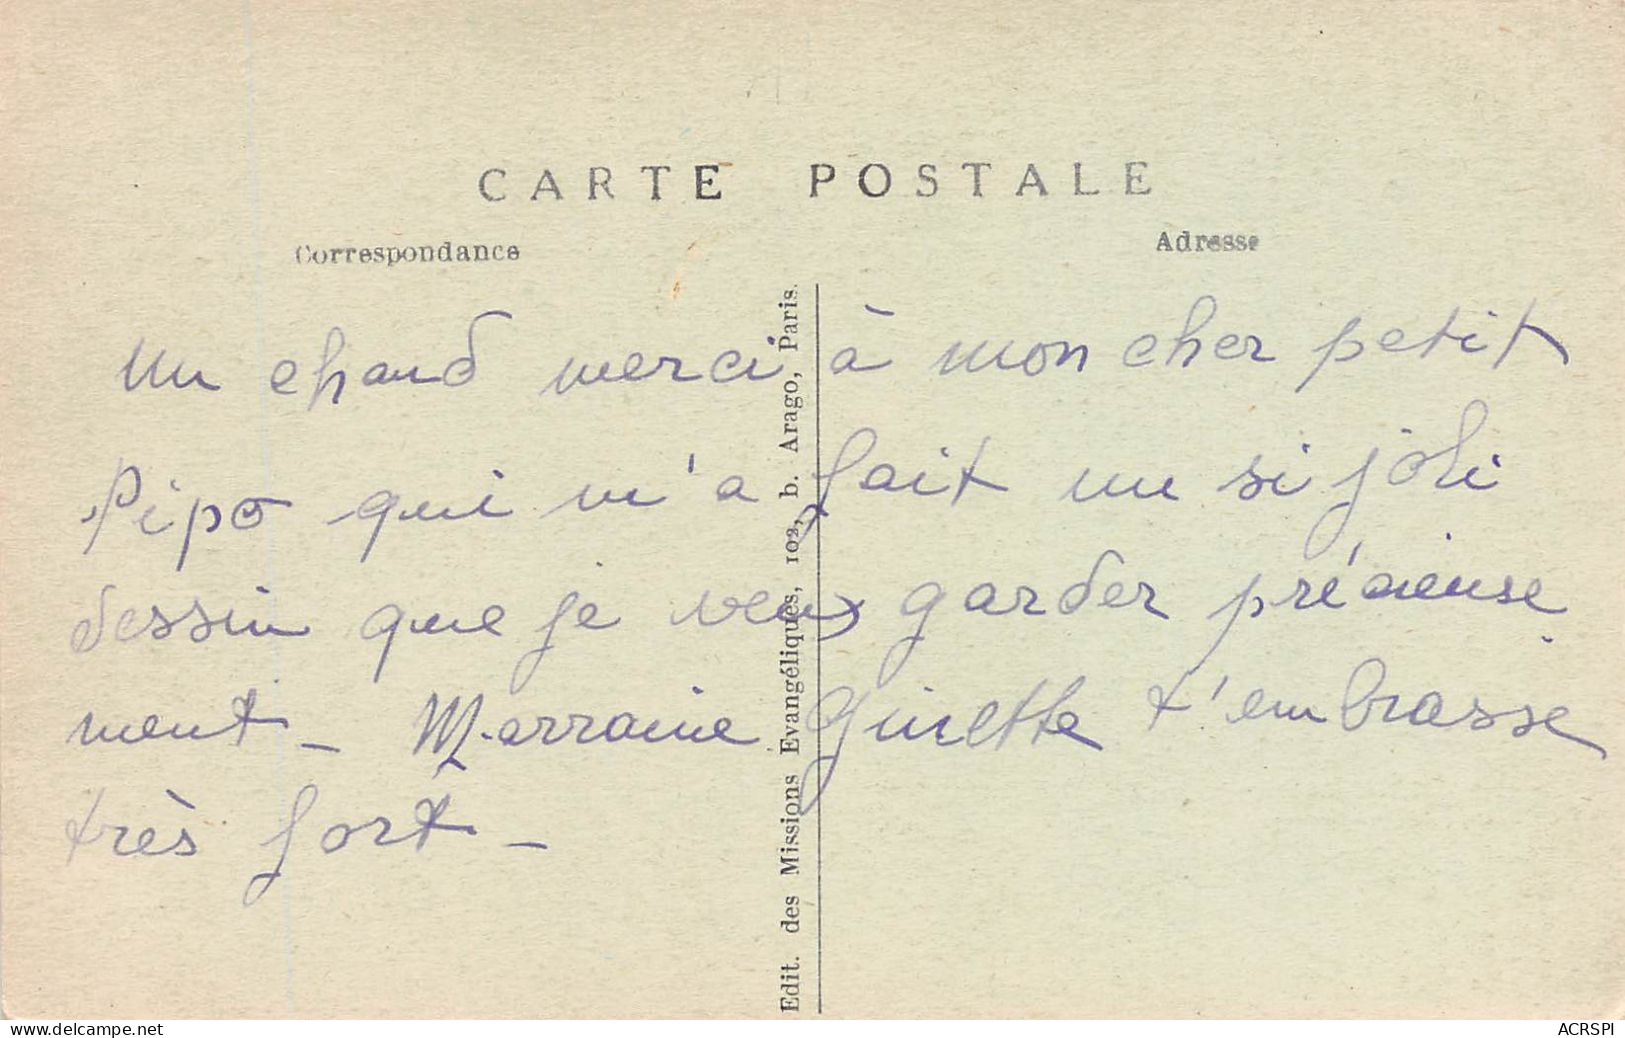 CARTE POSTALE
Correspondance
Adresse
un chaud merci à mon cher petit
Pipo qui m'a fait un si joli
dessin que je veux garder précieuse
ment - Marraine Ginette t'embrasse
très fort -
Edit. des Missions Evangéliques, 102, b. Arago, Paris.
www.delcampe.net
ACRSPI